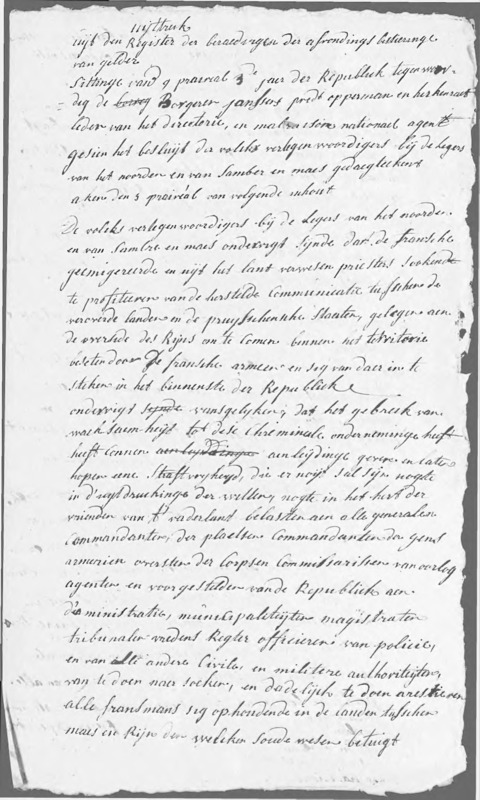 uijttreck
uijt den Register der beraedingen der afvondings bestieringe
van gelder
Sittinge vand 9 prairéal 3de jaer der Republiek tegenwoor-
dig de Borgeren janssens predt opperman en herkenraet
leden van het directorie, en national agent
gesien het besluijt der volks vertegenwoordigers bij de legers
van het noorden en van Samber en maes gedaegteekent
aken den 3 prairéal van volgende inhout
De volks vertegenwoordigers bij de Legers van het noorden
en van Sambre en maes onderrigt sijnde dat de fransche
geëmigreerde en uijt het lant verwesen priesters soekende
te profiteren van de herstelde Communicatie tusschen de
veroverde landen en de pruyssische staaten, gelegen aen
de overside des Rijns om te comen binnen het territorie
beset door de fransche armeen en seg van daer in te
steken in het binnenste der Republieke
onderrigt vansgelyken, dat het gebreck van
waeksaemheijt tot dese Chriminele ondernemingen heeft
heeft connen aenlijdinge geven en laten
hopen eene Straffvryheyd, die er noyt sal sijn nogte
in d'uytdruckinge der wetten, nogte in het hert der
vrienden van t' vaderlant belasten aen alle generalen
Commandanten, der plaetsen Commandanten de gens
armerien oversten der Corpsen Commissarissen van oorlog
agenten en voorgestelden van de Republiek aen
d'administratie, municipaliteijten magistraten
tribunalen vredens Regter officieren van policie,
en van alle andere Civile, en militere authoriteijten,
van te doen naer soeken, en dadelijck te doen aresteren
alle fransmans sig ophoudende in de landen tusschen
maes en Rijn den welcken soude wesen betuigt